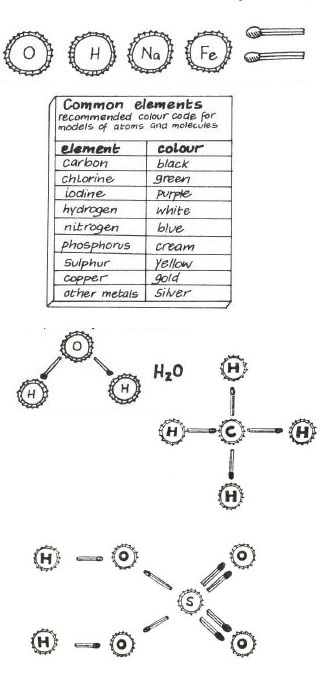 O H Na Fe
Common elements
recommended colour code for
models of atoms and molecules
element colour
carbon black
chlorine green
iodine purple
hydrogen white
nitrogen blue
phosphorus cream
sulphur yellow
copper gold
other metals silver
O
H H
H₂O
H
H C H
H
H O O
S
H O O